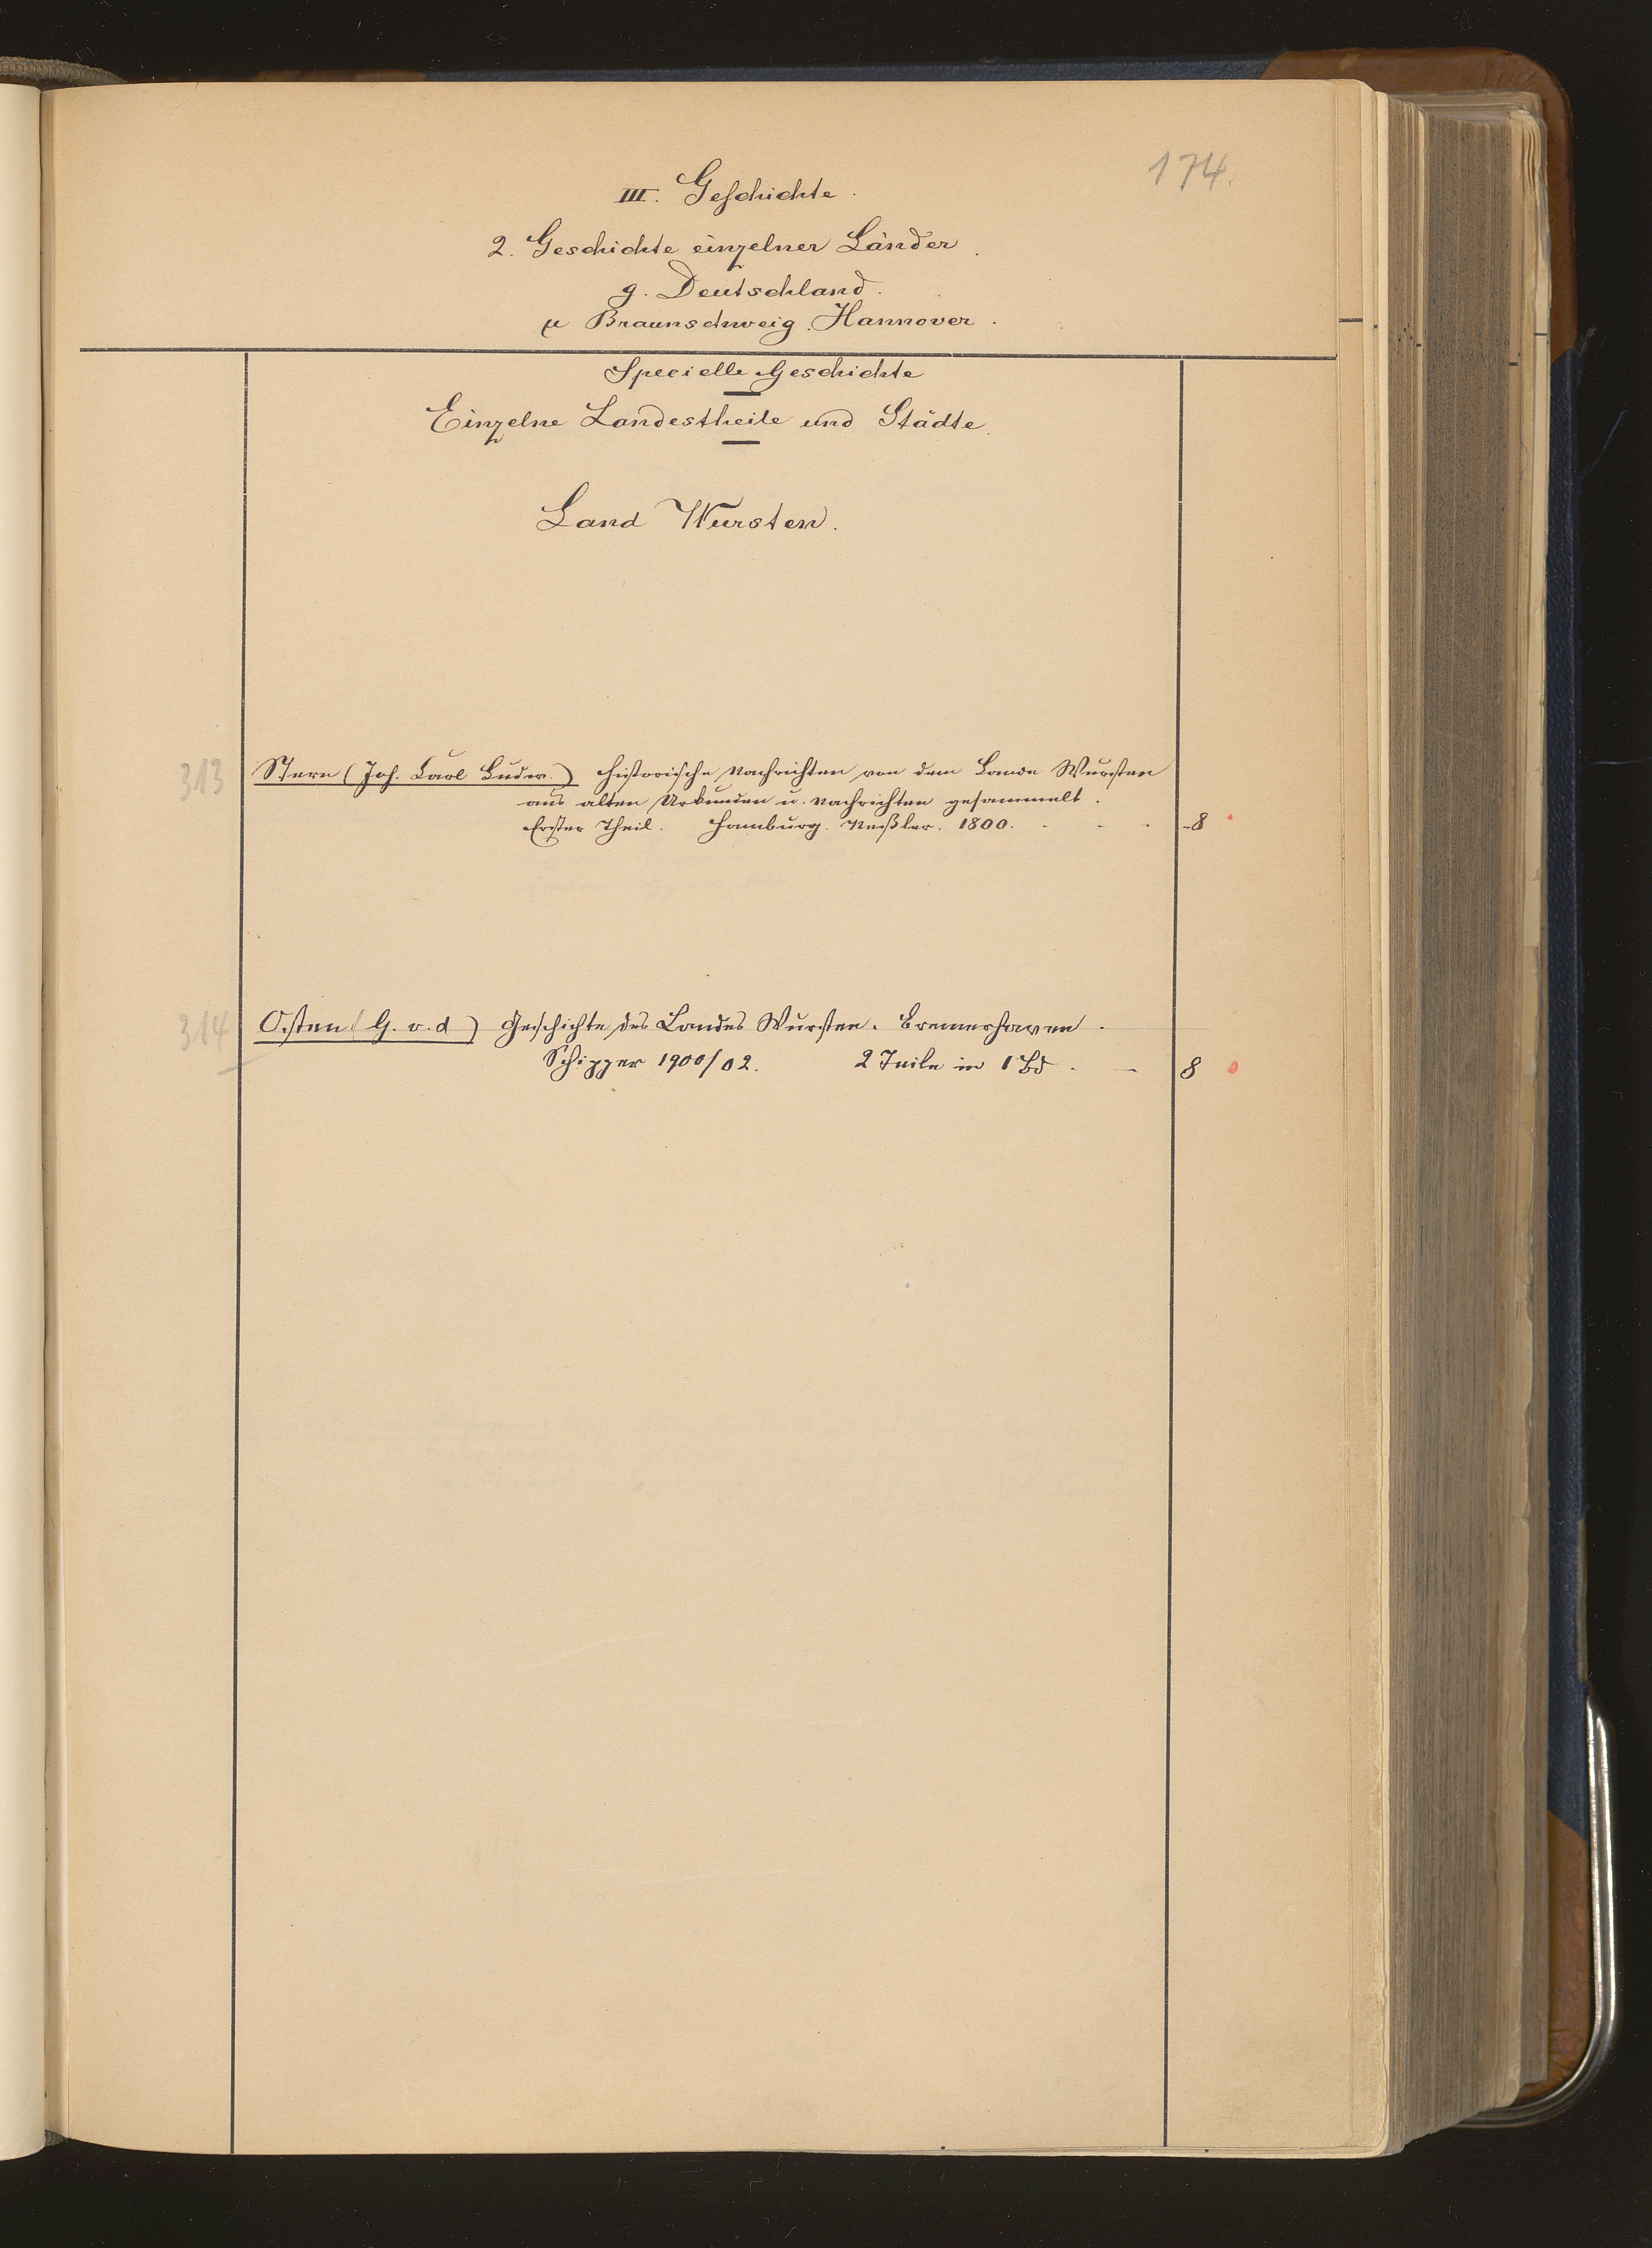 174.
III. Geschichte.
2. Geschichte einzelner Länder.
g. Deutschland.
µ Braunschweig. Hannover.
Specielle Geschichte
Einzelne Landestheile und Städte.
Land Wursten.
313 Stern (Joh. Carl Ludw.) Historische Nachrichten von dem Lande Wursten
aus alten Urkunden u. Nachrichten gesammelt.
Erster Theil. Hamburg. 1800. - 8
314 Osten (G. v. d) Geschichte des Landes Wursten. Bremerhaven.
Schipper 1900/02. 2 Teile in 1 Bd. - 8